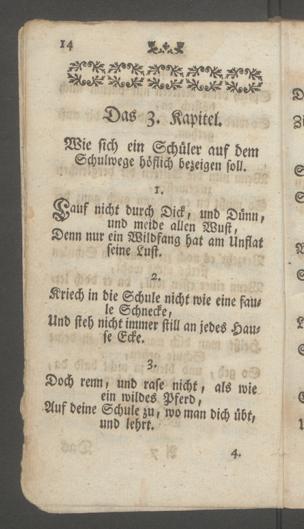 14
Das 3. Kapitel.
Wie sich ein Schüler auf dem
Schulwege höflich bezeigen soll.
1.
Lauf nicht durch Dick, und Dünn,
und meide allen Wust,
Denn nur ein Wildfang hat am Unflat
seine Lust.
2.
Kriech in die Schule nicht wie eine fau-
le Schnecke,
Und steh nicht immer still an jedes Hau-
se Ecke.
3.
Doch renn, und rase nicht, als wie
ein wildes Pferd,
Auf deine Schule zu, wo man dich übt,
und lehrt.
4.